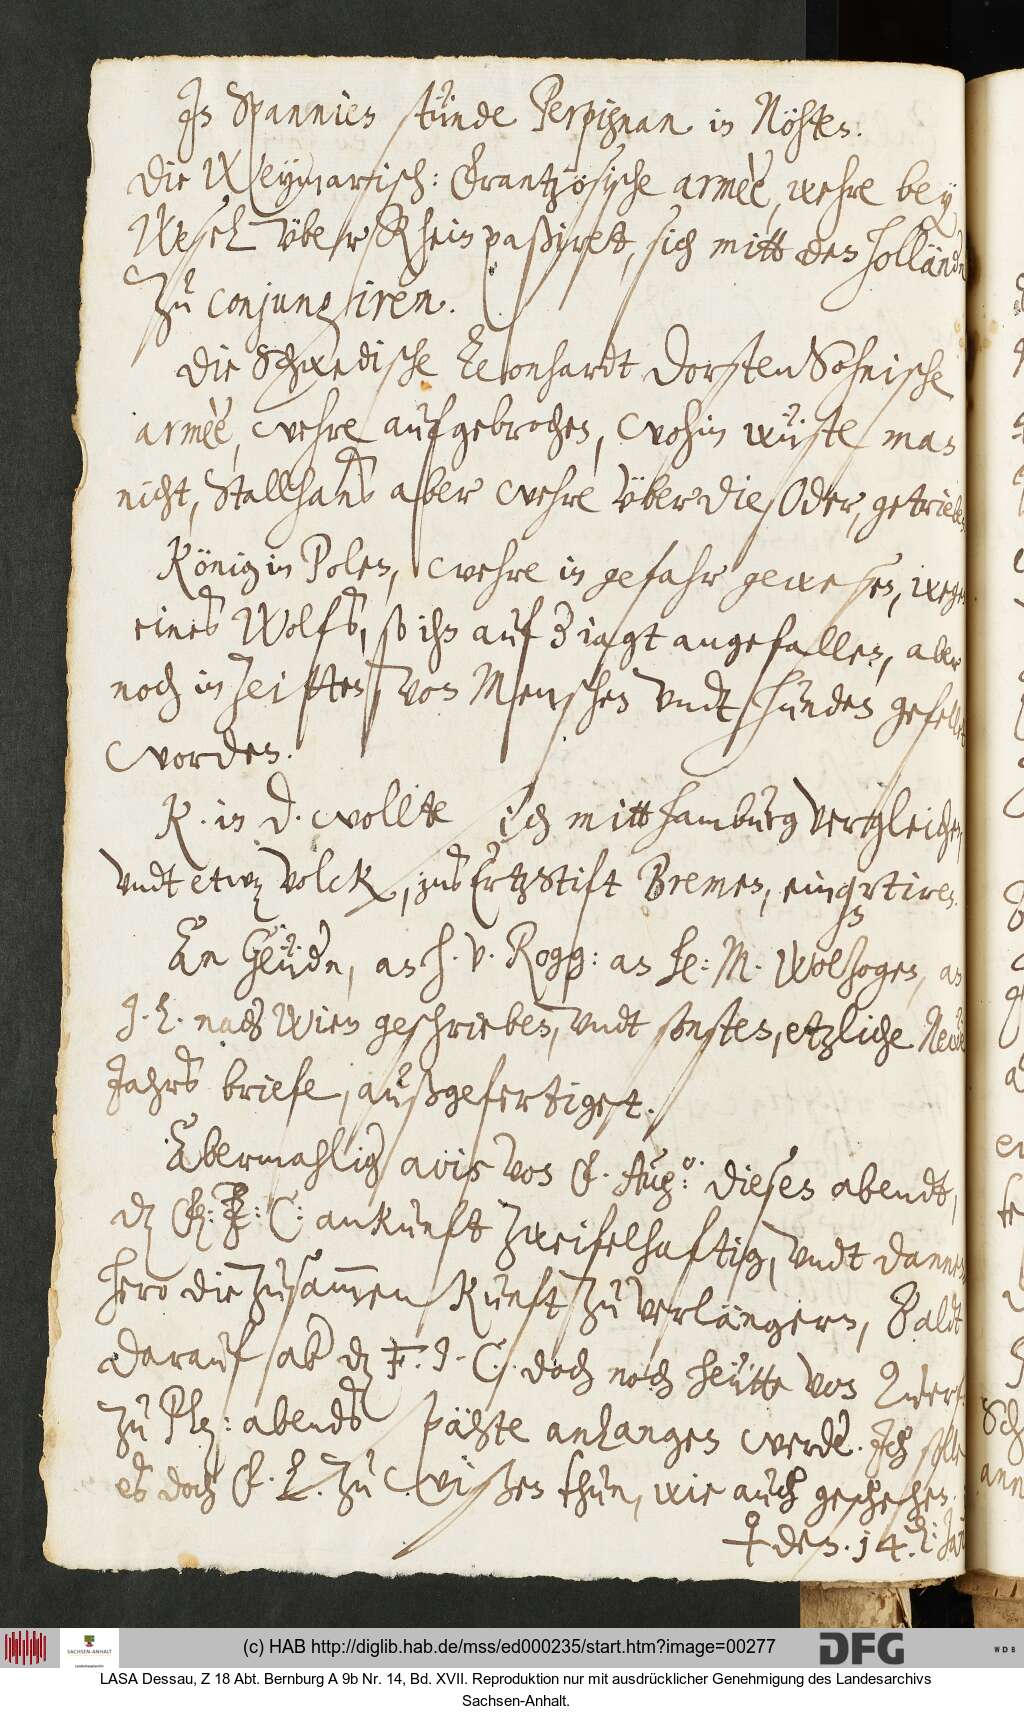 In Spannien stünde Perpignan in Nöhten.
Die Weymarisch: Frantzösische armèè, wehre bey
Wesel über Rhein paßiret, sich mitt den Holländ
zu conjungiren.
Die Schwedische Leonhardt DorstenSohnische
armèè, wehre aufgebrochen, wohin wüste man
nicht, Stallhans aber wehre über die Oder, getrieb
König in Polen, wehre in gefahr gewesen, wege
eines Wolfs, so ihn auf der iagt angefallen, aber
noch in Zeitten, von Menschen undt Hunden gefell
worden.
K. in D. wollte sich mitt Hamburg vergleichen,
undt etwz volck, ins Ertzstift Bremen, einqrtiren.
An Geüdn, an H. v. Rogg: an He: M. Wolzogen, an
J. L. nacher Wien geschrieben, undt sonsten, etzliche Neu
Jahrs briefe, außgefertiget.
Abermahlig avis von F. Aug: dieses abendt,
dz F: J: C: ankunft zweifelhaftig, undt dannen
hero die Zusammenkunft zu verlängern, Baldt
darauf ab dz F. J. C. doch noch heütte von Querf
zu Plz: abends spähte anlangen werde. Ich solle
es doch F. L. zu wißen thun, wie auch geschehen.
♀ den. 14. Jan
(c) HAB http://diglib.hab.de/mss/ed000235/start.htm?image=00277
SACHSEN-ANHALT
DFG
WDB
LASA Dessau, Z 18 Abt. Bernburg A 9b Nr. 14, Bd. XVII. Reproduktion nur mit ausdrücklicher Genehmigung des Landesarchivs
Sachsen-Anhalt.